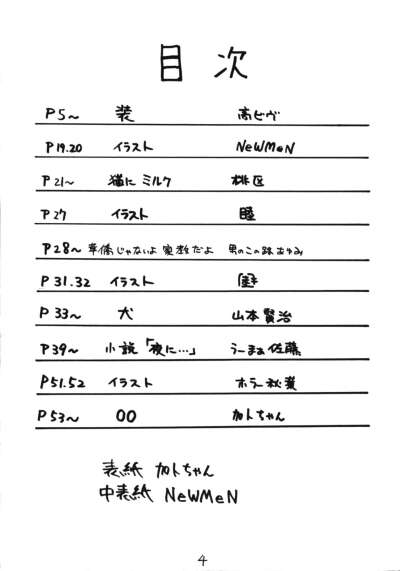 目次
P5～ 装 高ピヴ
P19.20 イラスト NeWMeN
P21～ 猫に ミルク 桃区
P27 イラスト 睦
P28～ 準備じゃないよ 変数だよ 男のこの
P31.32 イラスト
P33～ 犬 山本賢治
P39～ 小説「夜に…」 うーまぁ佐藤
P51.52 イラスト ホラー秋葉
P53～ OO 加トちゃん
表紙 加トちゃん
中表紙 NeWMeN
4